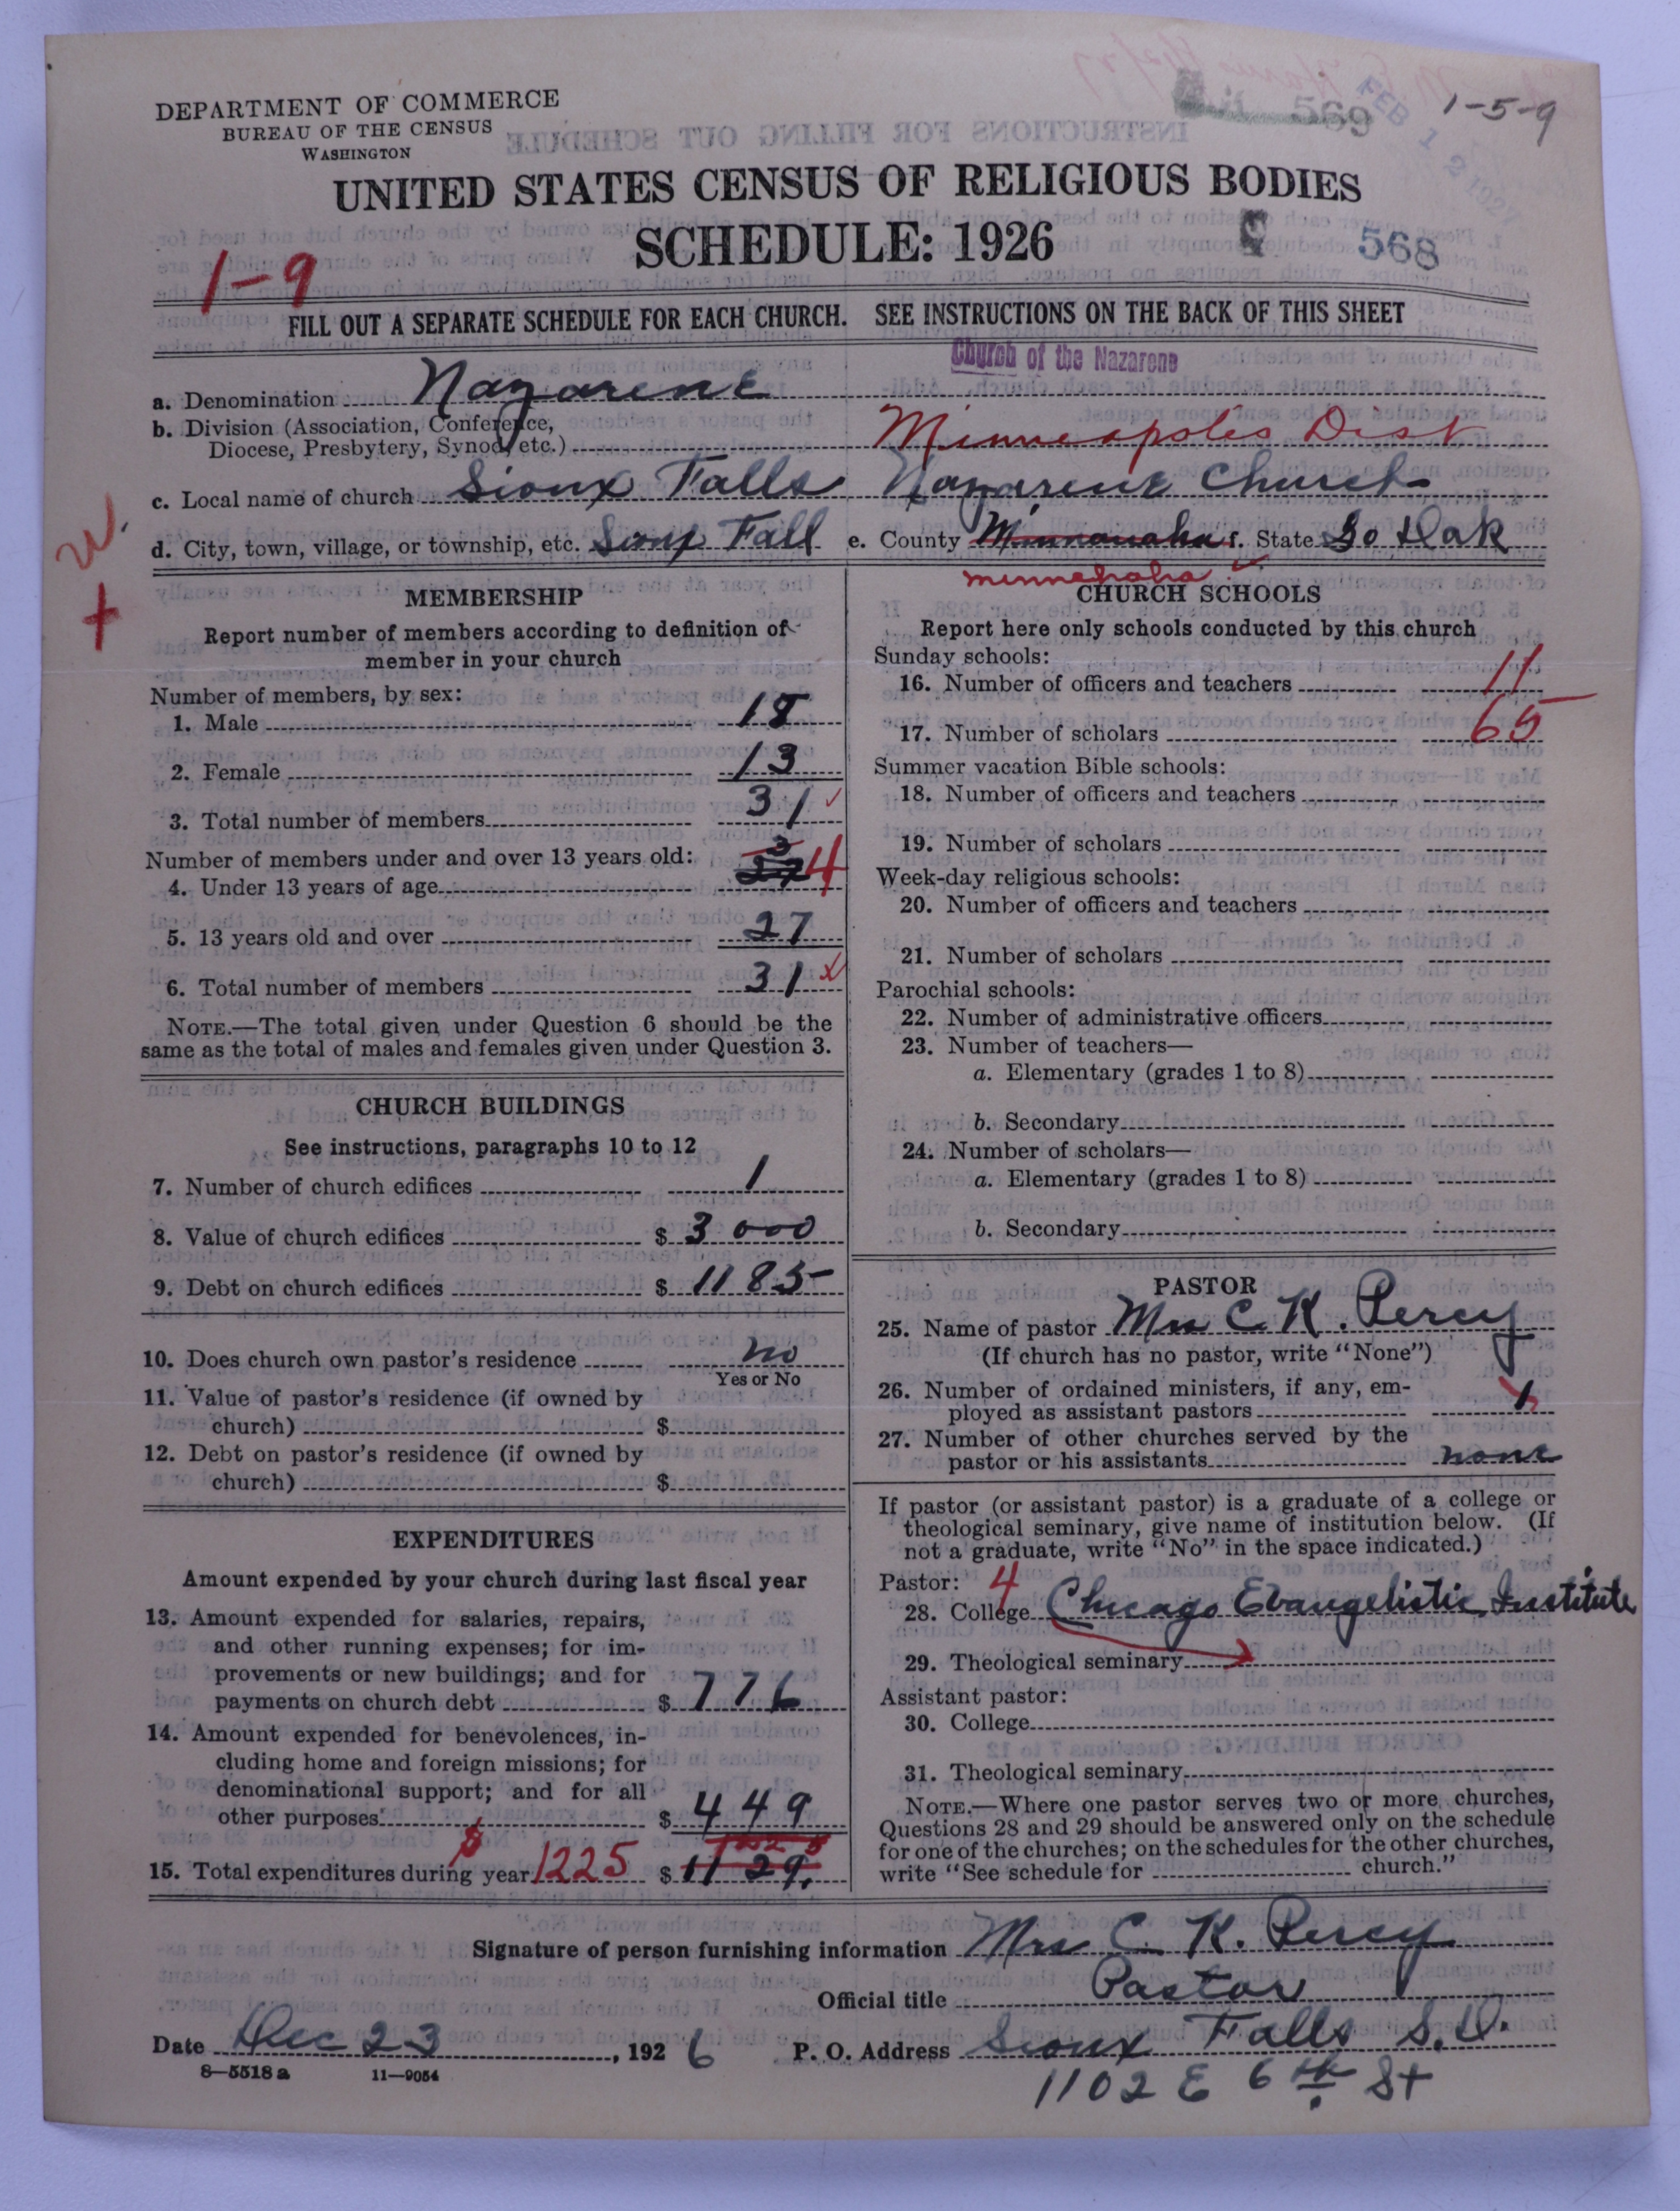 DEPARTMENT OF COMMERCE
BUREAU OF THE CENSUS
WASHINGTON
569
FEB 12 1927
1-5-9
UNITED STATES CENSUS OF RELIGIOUS BODIES
SCHEDULE: 1926
568
1-9
FILL OUT A SEPARATE SCHEDULE FOR EACH CHURCH. SEE INSTRUCTIONS ON THE BACK OF THIS SHEET
Church of the Nazarene
a. Denomination Nazarene
b. Division (Association, Conference, Diocese, Presbytery, Synod, etc.) Minneapolis Dist
c. Local name of church Sioux Falls Nazarene Church
d. City, town, village, or township, etc. Sioux Fall e. County Minnanaha f. State So Dak
minnehaha
MEMBERSHIP
Report number of members according to definition of
member in your church
Number of members, by sex:
1. Male 18
2. Female 13
3. Total number of members 31
Number of members under and over 13 years old:
4. Under 13 years of age 4
5. 13 years old and over 27
6. Total number of members 31
NOTE.—The total given under Question 6 should be the
same as the total of males and females given under Question 3.
CHURCH BUILDINGS
See instructions, paragraphs 10 to 12
7. Number of church edifices 1
8. Value of church edifices $ 3000
9. Debt on church edifices $ 1185
10. Does church own pastor's residence no
Yes or No
11. Value of pastor's residence (if owned by
church) $
12. Debt on pastor's residence (if owned by
church) $
EXPENDITURES
Amount expended by your church during last fiscal year
13. Amount expended for salaries, repairs,
and other running expenses; for im-
provements or new buildings; and for
payments on church debt $ 776
14. Amount expended for benevolences, in-
cluding home and foreign missions; for
denominational support; and for all
other purposes $ 449
15. Total expenditures during year $ 1225 $ 1129.
CHURCH SCHOOLS
Report here only schools conducted by this church
Sunday schools:
16. Number of officers and teachers 11
17. Number of scholars 65
Summer vacation Bible schools:
18. Number of officers and teachers
19. Number of scholars
Week-day religious schools:
20. Number of officers and teachers
21. Number of scholars
Parochial schools:
22. Number of administrative officers
23. Number of teachers—
a. Elementary (grades 1 to 8)
b. Secondary
24. Number of scholars—
a. Elementary (grades 1 to 8)
b. Secondary
PASTOR
25. Name of pastor Mrs C. K. Percy
(If church has no pastor, write "None")
26. Number of ordained ministers, if any, em-
ployed as assistant pastors 1
27. Number of other churches served by the
pastor or his assistants none
If pastor (or assistant pastor) is a graduate of a college or
theological seminary, give name of institution below. (If
not a graduate, write "No" in the space indicated.)
Pastor: 4
28. College Chicago Evangelistic Institute
29. Theological seminary
Assistant pastor:
30. College
31. Theological seminary
NOTE.—Where one pastor serves two or more churches,
Questions 28 and 29 should be answered only on the schedule
for one of the churches; on the schedules for the other churches,
write "See schedule for church."
Signature of person furnishing information Mrs C. K. Percy
Official title Pastor
Date Dec 23, 1926 P. O. Address Sioux Falls S.D.
8—5518 a 11—9054
1102 E 6th St